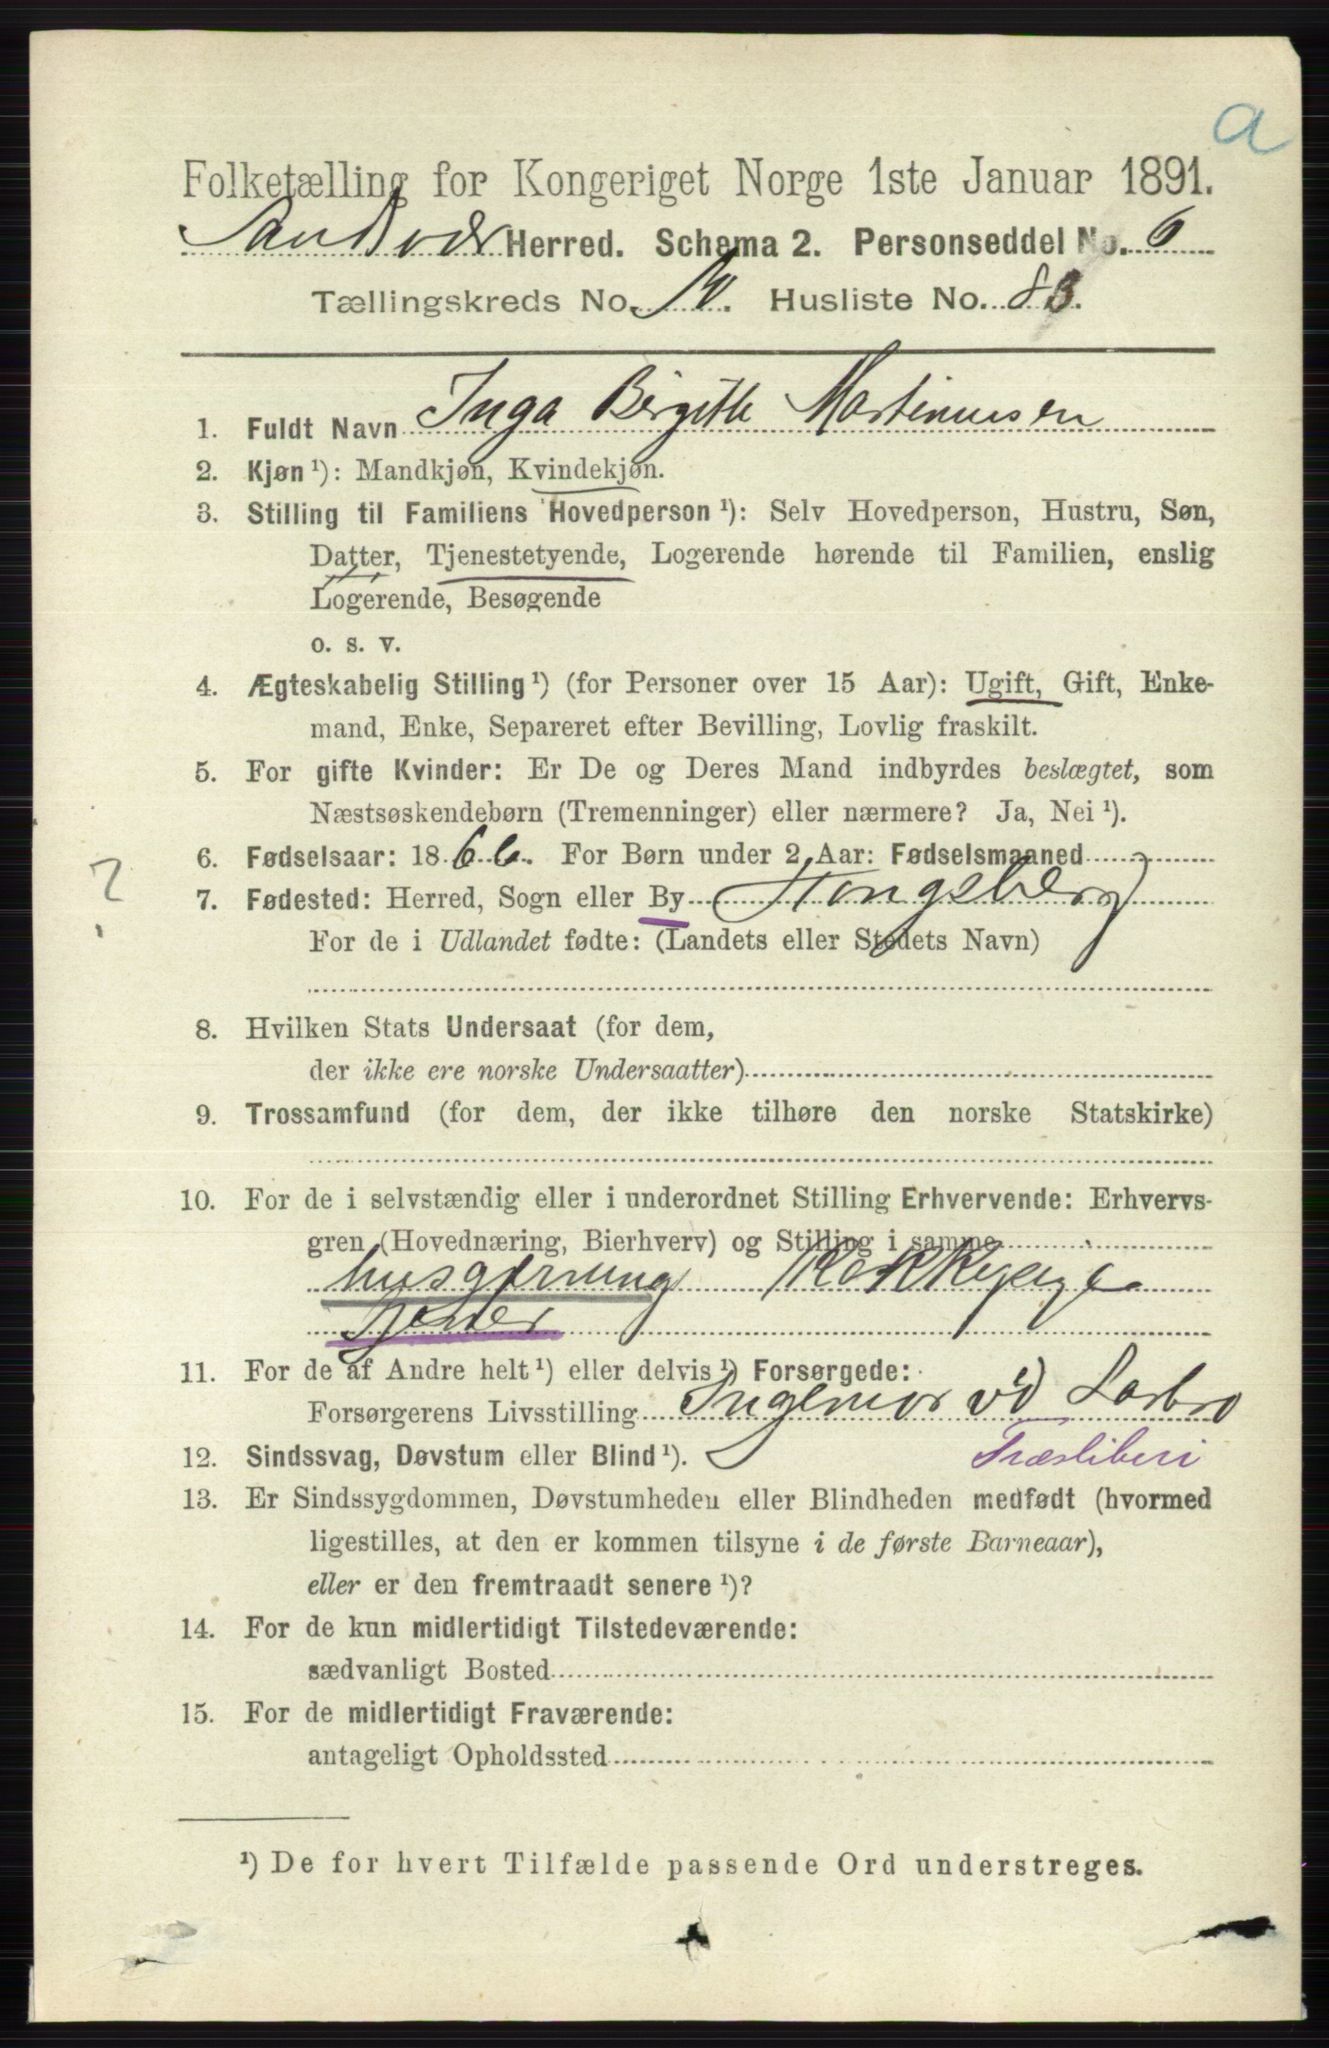 a
Folketælling for Kongeriget Norge 1ste Januar 1891.
Sandsvær Herred. Schema 2. Personseddel No. 6
Tællingskreds No. Husliste No. 83.
1. Fuldt Navn Inga Birgitte Martinusen
2. Kjøn ¹): Mandkjøn, Kvindekjøn.
3. Stilling til Familiens Hovedperson ¹): Selv Hovedperson, Hustru, Søn,
Datter, Tjenestetyende, Logerende hørende til Familien, enslig
Logerende, Besøgende
o. s. v.
4. Ægteskabelig Stilling ¹) (for Personer over 15 Aar): Ugift, Gift, Enke-
mand, Enke, Separeret efter Bevilling, Lovlig fraskilt.
5. For gifte Kvinder: Er De og Deres Mand indbyrdes beslægtet, som
Næstsøskendebørn (Tremenninger) eller nærmere? Ja, Nei ¹).
6. Fødselsaar: 1866. For Børn under 2 Aar: Fødselsmaaned
?
7. Fødested: Herred, Sogn eller By Kongsberg
For de i Udlandet fødte: (Landets eller Stedets Navn)
8. Hvilken Stats Undersaat (for dem,
der ikke ere norske Undersaatter)
9. Trossamfund (for dem, der ikke tilhøre den norske Statskirke)
10. For de i selvstændig eller i underordnet Stilling Erhvervende: Erhvervs-
gren (Hovednæring, Bierhverv) og Stilling i samme
husgjerning Kokkepige
tjener
11. For de af Andre helt ¹) eller delvis ¹) Forsørgede:
Forsørgerens Livsstilling Ingeniør ved Labro
Træsliberi
12. Sindssvag, Døvstum eller Blind ¹).
13. Er Sindssygdommen, Døvstumheden eller Blindheden medfødt (hvormed
ligestilles, at den er kommen tilsyne i de første Barneaar),
eller er den fremtraadt senere ¹)?
14. For de kun midlertidigt Tilstedeværende:
sædvanligt Bosted
15. For de midlertidigt Fraværende:
antageligt Opholdssted
¹) De for hvert Tilfælde passende Ord understreges.